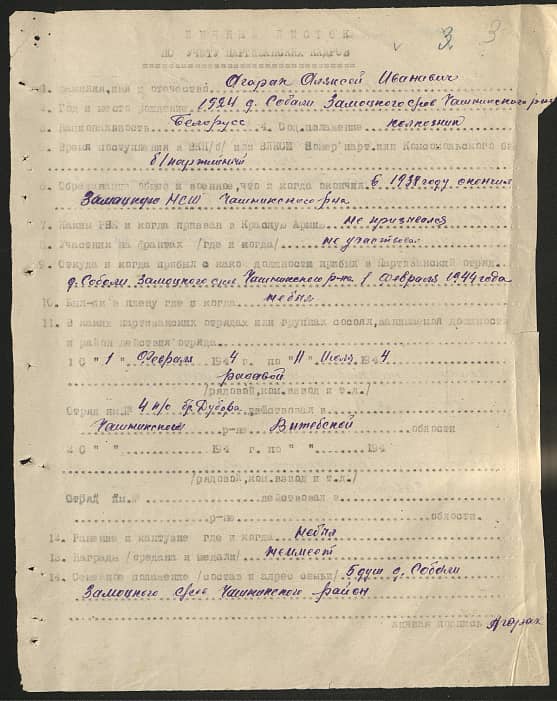 3. 3
ЛИЧНЫЙ ЛИСТОК
ПО УЧЕТУ ПАРТИЗАНСКИХ КАДРОВ
1. Фамилия, имя и отчество Агорах Алексей Иванович
2. Год и место рождения 1924 д. Соболи Замоцкого с/сов Чашникского р-на
3. Национальность Белорусс 4. Соц.положение колхозник
5. Время поступления в ВКП/б/ или ВЛКСМ Номер парт.или Комсомольского
б/партийный
6. Образование общее и военное, что и когда окончил в 1938 году окончил
Замоцкую НСШ Чашникского р-на
7. Каким РВК и когда призван в Красную Армию не призвался
8. Участник на фронтах /где и когда/ не участвовал
9. Откуда и когда прибыл с како должности прибых в Партизанский отряд
д. Соболи Замоцкого с/сов Чашникского р-на 1 февраля 1944 года
10. Был-ли в плену где и когда небыл
11. В каких партизанских отрядах или группах состоял, занимаемая должность
и район действия отряда
1 С "1" Февраля 1944 г. по "11" Июля 1944
рядовой
/рядовой, ком.взвод и т.д./
Отряд им.№ 4 п/о бр. Дубова действовал в
Чашникском р-не Витебской области
2 С " " 194 г. по " " 194
/рядовой, ком.взвод и т.д./
Отряд им.№ действовал в
р-не области.
14. Ранение и кантузие где и когда небыл
15. Награды /ордена и медали/ неимеет
Семейное положение /состав и адрес семьи/ 5 душ д. Соболи
Замоцкого с/сов Чашникского район
личная подпись Агорах